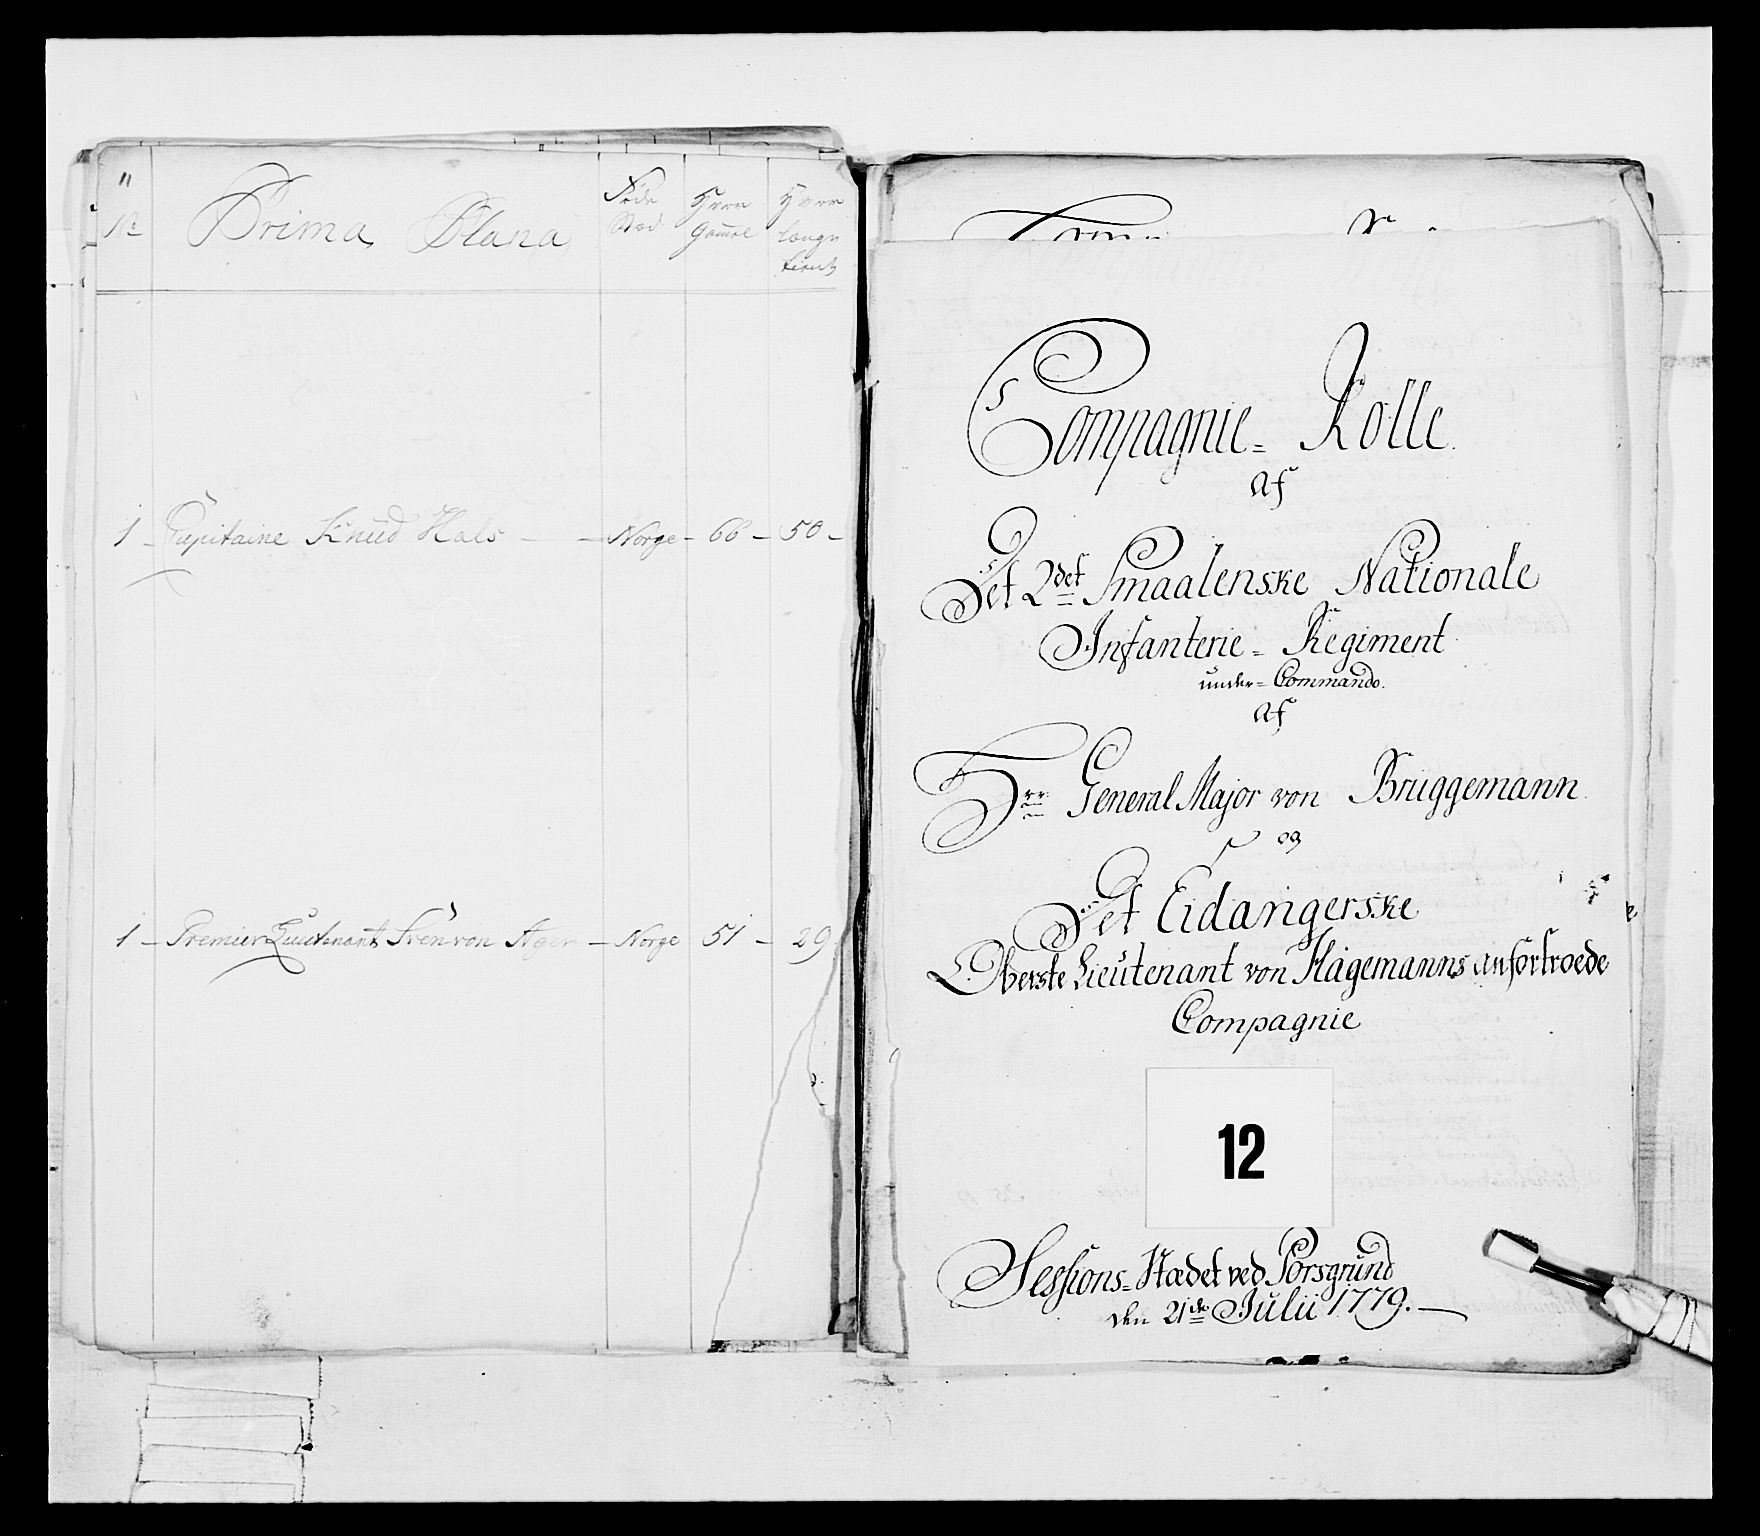 No
Prima Plana
Föde
Stæd
Hvor
Gamle
Hvor
længe
tient
1 - Capitaine Knud Hals - - Norge - 66 - 50 -
1 - Premier Lieutenant Frēn von Ager - Norge 51 - 29
Compagnie = Rolle.
af
Det 2det Smaalenske Nationale
Infanterie = Regiment
under = Commando.
af
Hrr General Major von Brüggemann
og
Det Eidangerske
Oberste Lieutenant von Hagemanns anfortroede
Compagnie
12
Sessions = Stædet ved Porsgrund
den 21de Julii 1779.